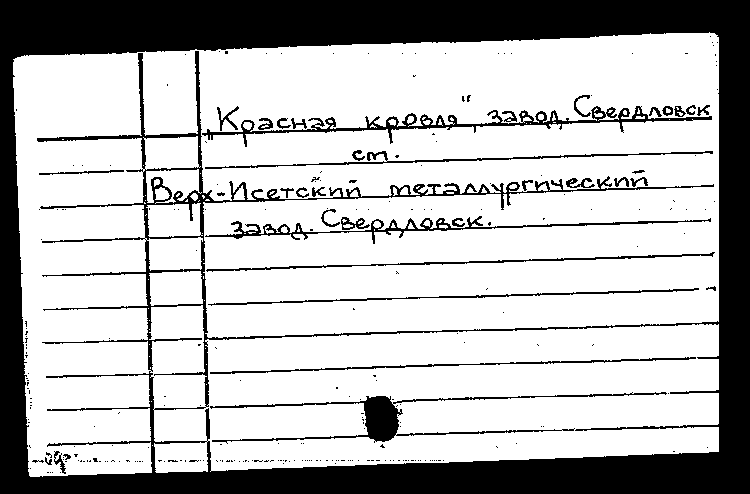 „Красная кровля", завод. Свердловск
ст.
Верх-Исетский металлургический
завод. Свердловск.